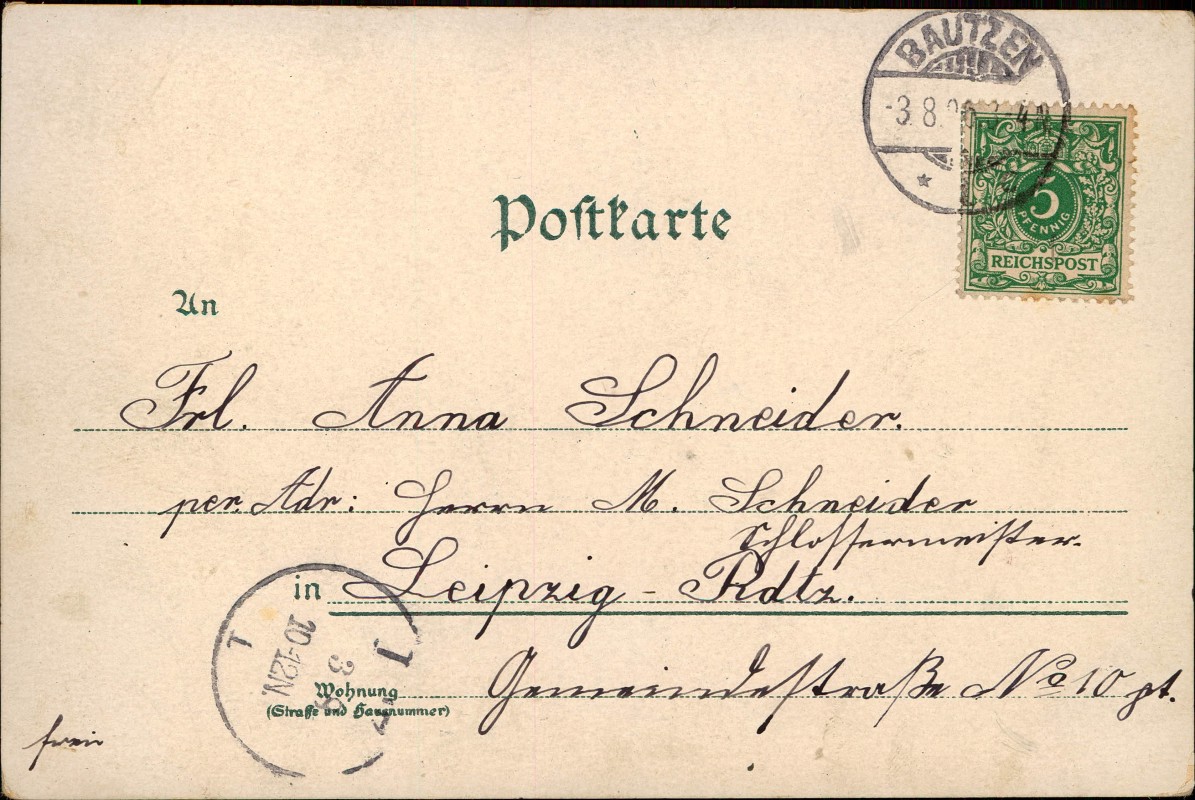 BAUTZEN
-3.8.96
5
PFENNIG
REICHSPOST
Postkarte
An
Frl. Anna Schneider.
per. Adr: Herrn M. Schneider
Schlossermeister.
in Leipzig - Rdtz.
T
1
3
8
10-12N.
Wohnung
(Straße und Hausnummer)
Gemeindestraße No 10 pt.
frei